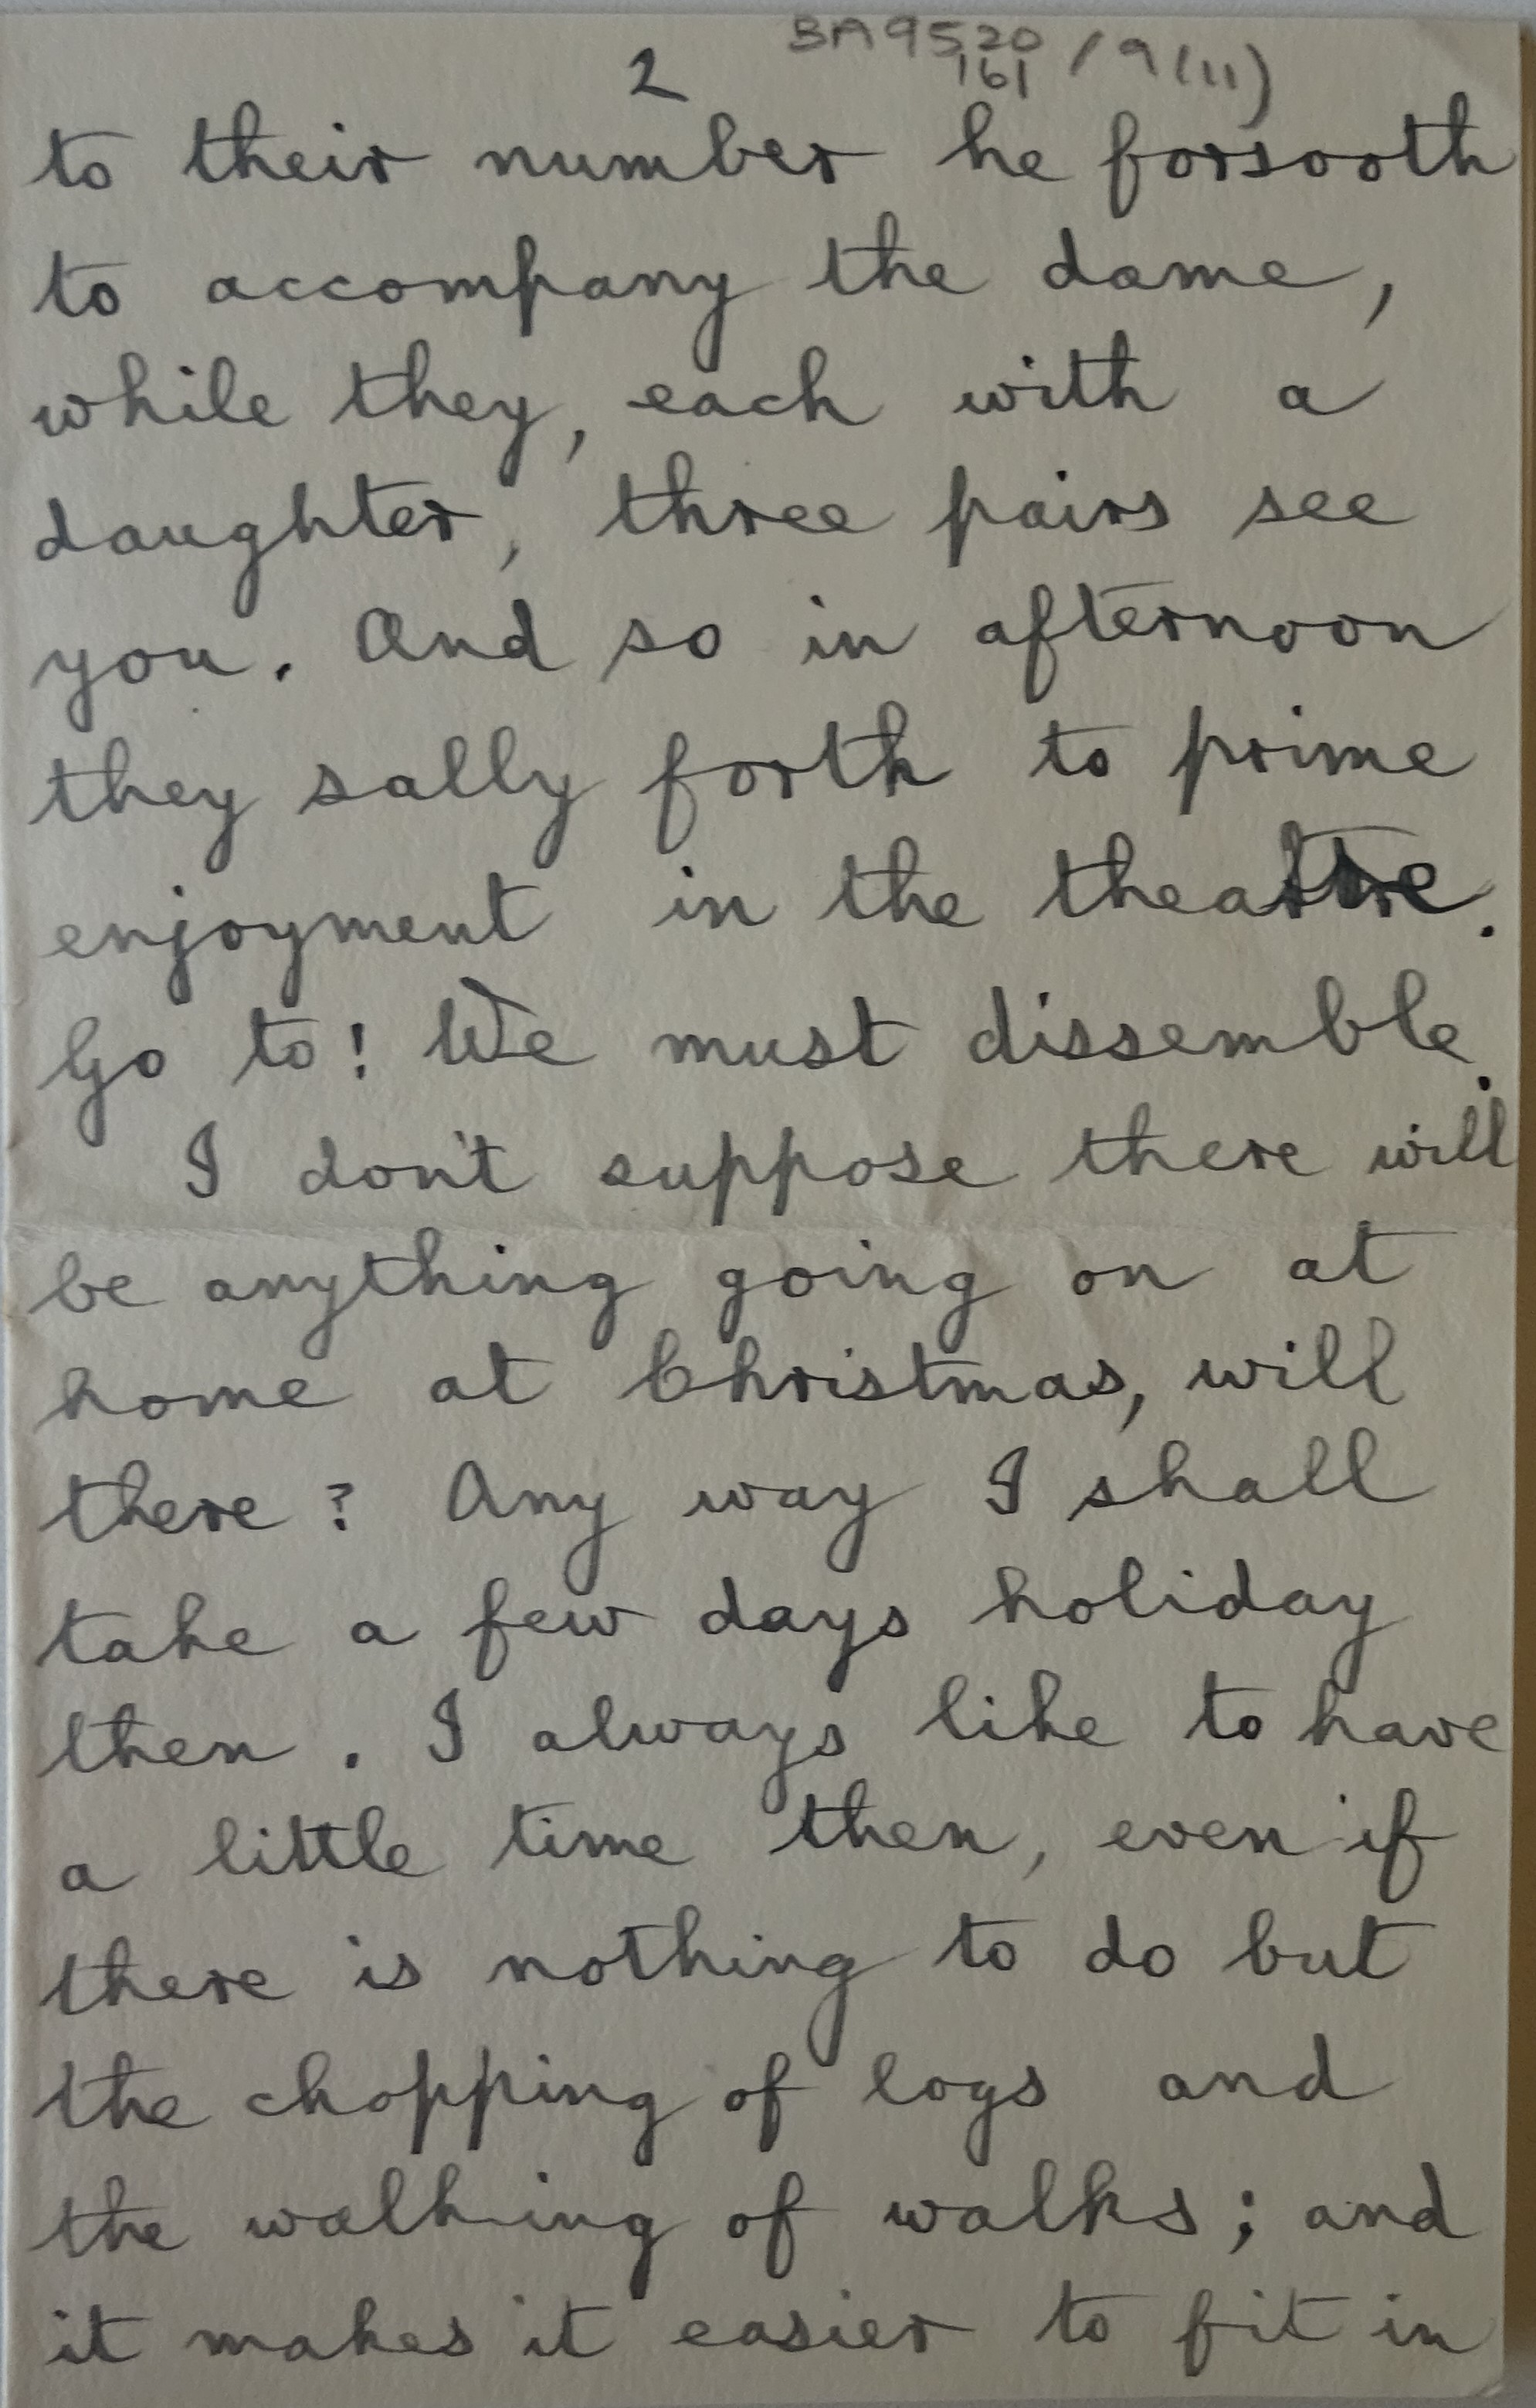 BA9520 / 9(11)
161
2
to their number he forsooth
to accompany the dame,
while they, each with a
daughter, three pairs see
you. And so in afternoon
they sally forth to prime
enjoyment in the theatre.
Go to! We must dissemble.
I don't suppose there will
be anything going on at
home at Christmas, will
there? Any way I shall
take a few days holiday
then. I always like to have
a little time then, even if
there is nothing to do but
the chopping of logs and
the walking of walks; and
it makes it easier to fit in